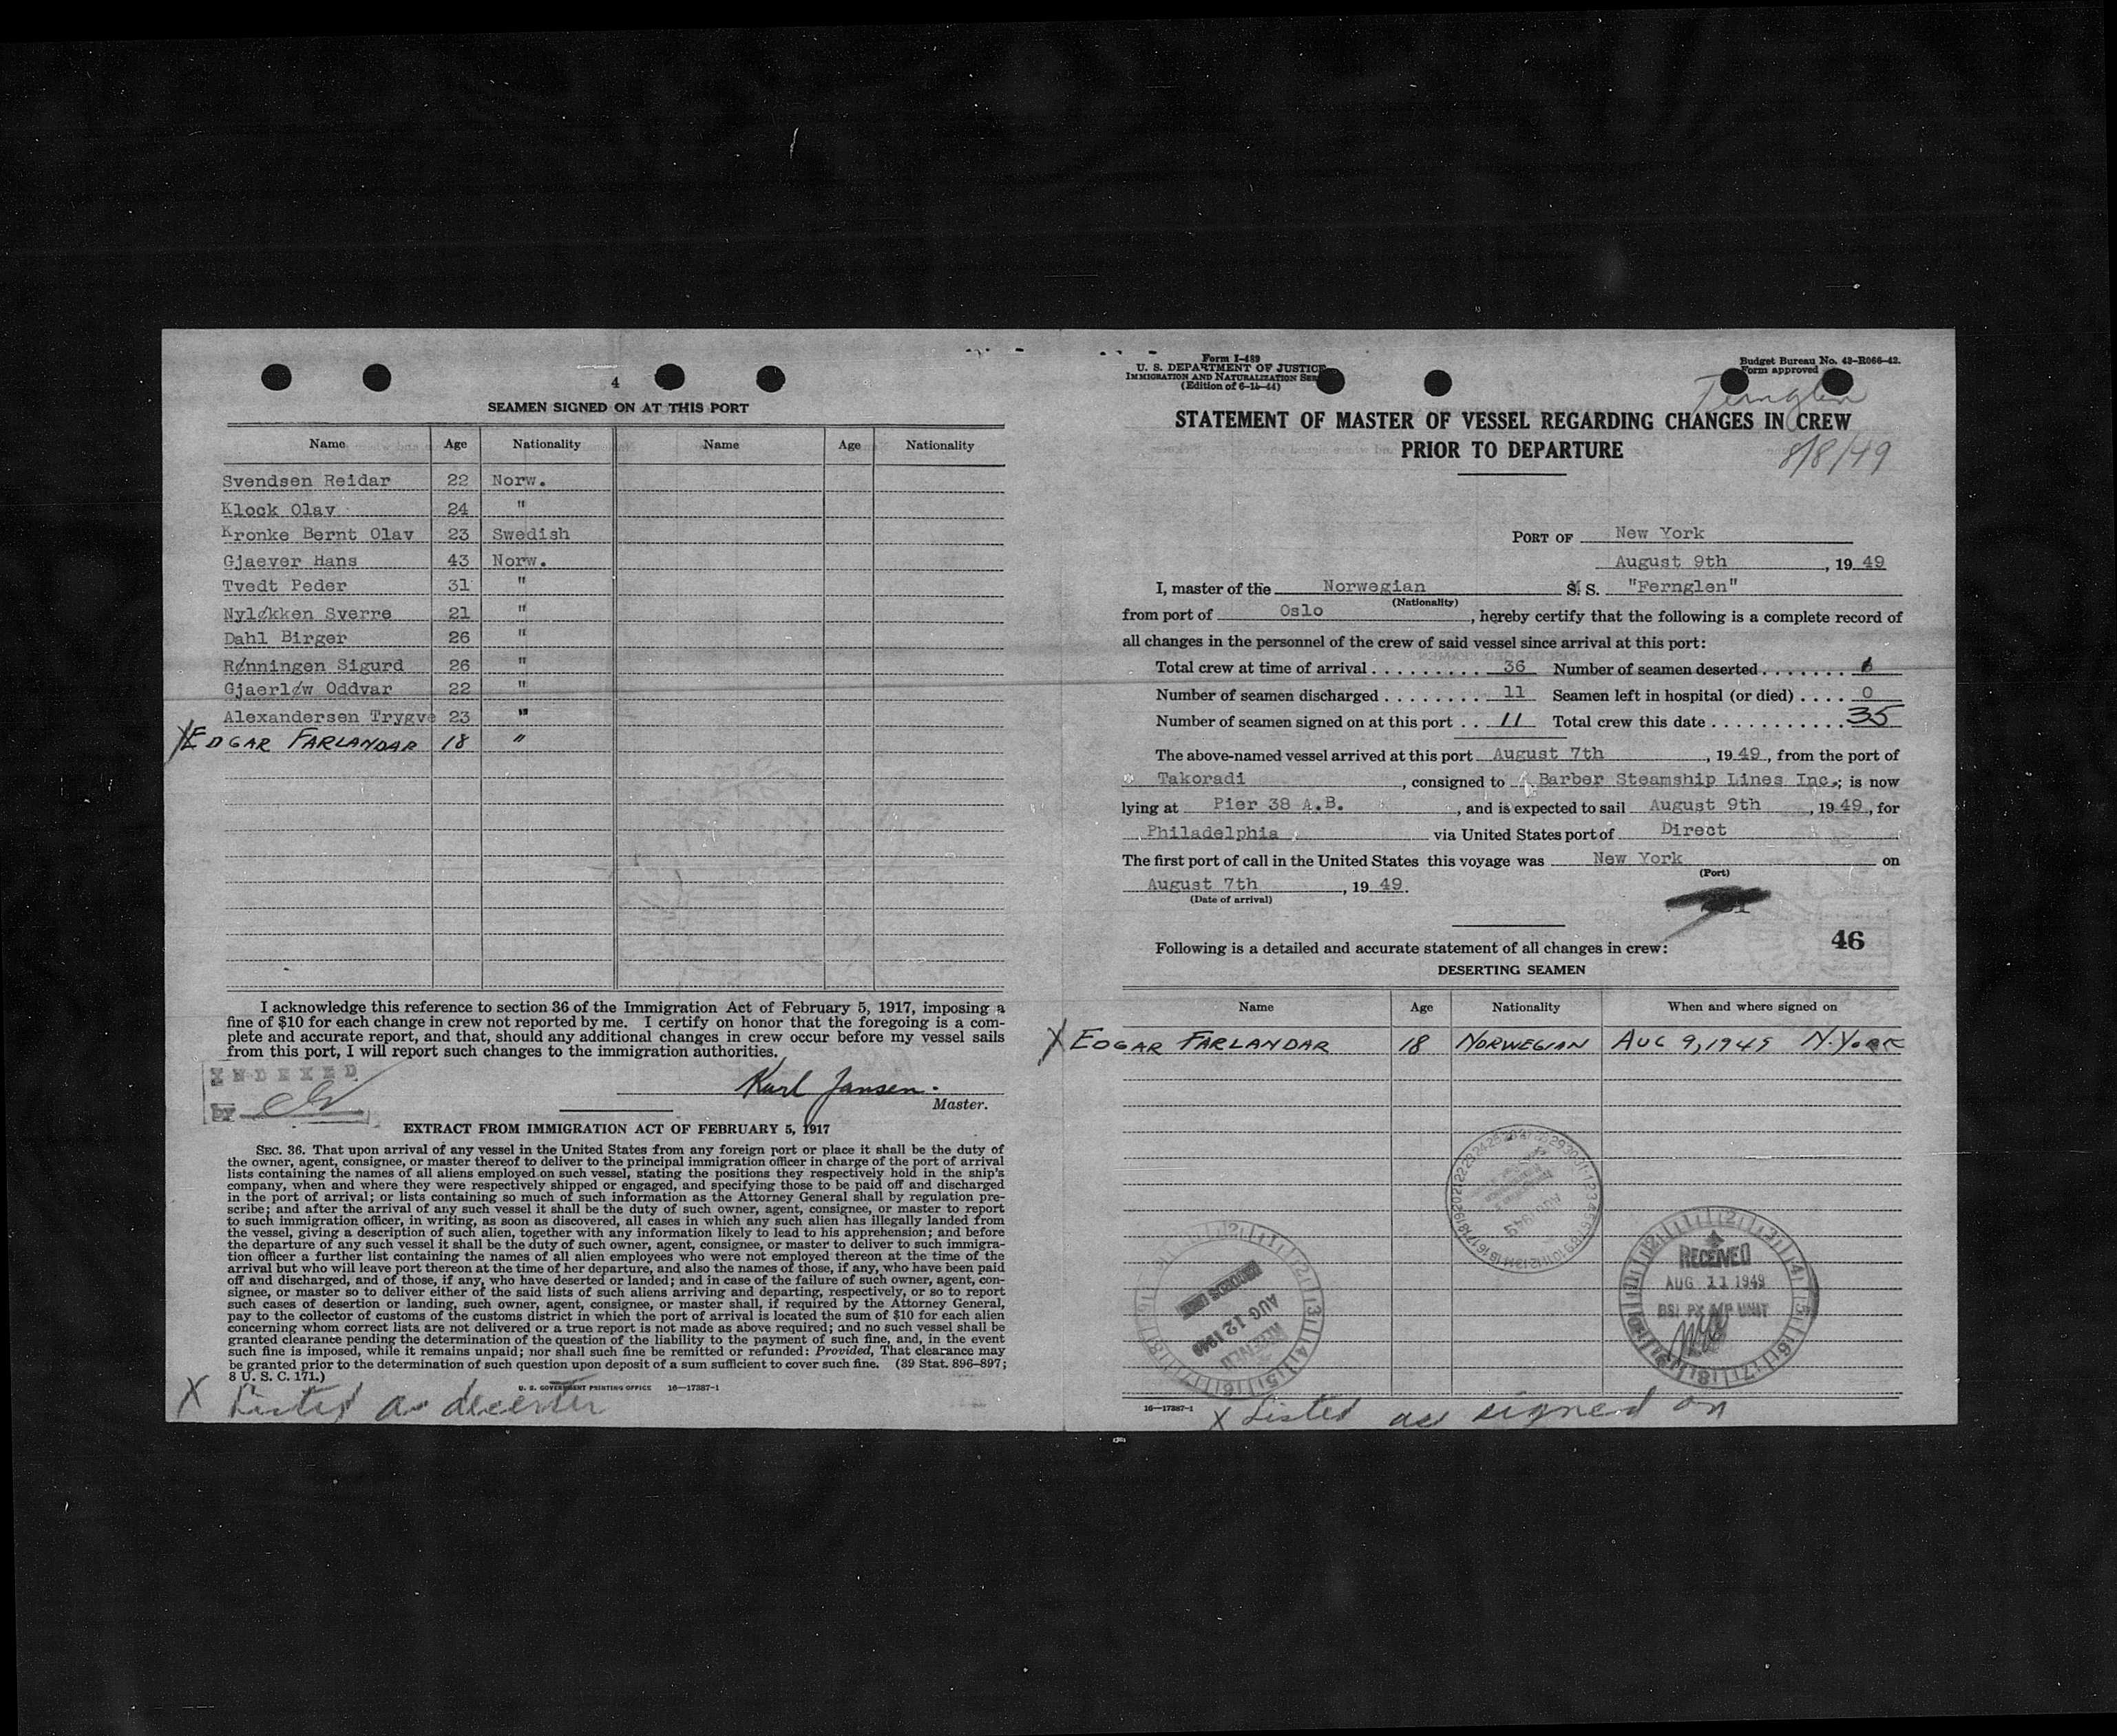 4
SEAMEN SIGNED ON AT THIS PORT
Name Age Nationality Name Age Nationality
Svendsen Reidar 22 Norw.
Klock Olav 24 "
Kronke Bernt Olav 23 Swedish
Gjaever Hans 43 Norw.
Tvedt Peder 31 "
Nyløkken Sverre 21 "
Dahl Birger 26 "
Rønningen Sigurd 26 "
Gjaerløw Oddvar 22 "
Alexandersen Trygve 23 "
X EDGAR FARLANDAR 18 "
I acknowledge this reference to section 36 of the Immigration Act of February 5, 1917, imposing a
fine of $10 for each change in crew not reported by me. I certify on honor that the foregoing is a com-
plete and accurate report, and that, should any additional changes in crew occur before my vessel sails
from this port, I will report such changes to the immigration authorities.
INDEXED
by
Karl Jansen.
Master.
EXTRACT FROM IMMIGRATION ACT OF FEBRUARY 5, 1917
SEC. 36. That upon arrival of any vessel in the United States from any foreign port or place it shall be the duty of
the owner, agent, consignee, or master thereof to deliver to the principal immigration officer in charge of the port of arrival
lists containing the names of all aliens employed on such vessel, stating the positions they respectively hold in the ship's
company, when and where they were respectively shipped or engaged, and specifying those to be paid off and discharged
in the port of arrival; or lists containing so much of such information as the Attorney General shall by regulation pre-
scribe; and after the arrival of any such vessel it shall be the duty of such owner, agent, consignee, or master to report
to such immigration officer, in writing, as soon as discovered, all cases in which any such alien has illegally landed from
the vessel, giving a description of such alien, together with any information likely to lead to his apprehension; and before
the departure of any such vessel it shall be the duty of such owner, agent, consignee, or master to deliver to such immigra-
tion officer a further list containing the names of all alien employees who were not employed thereon at the time of the
arrival but who will leave port thereon at the time of her departure, and also the names of those, if any, who have been paid
off and discharged, and of those, if any, who have deserted or landed; and in case of the failure of such owner, agent, con-
signee, or master so to deliver either of the said lists of such aliens arriving and departing, respectively, or so to report
such cases of desertion or landing, such owner, agent, consignee, or master shall, if required by the Attorney General,
pay to the collector of customs of the customs district in which the port of arrival is located the sum of $10 for each alien
concerning whom correct lists are not delivered or a true report is not made as above required; and no such vessel shall be
granted clearance pending the determination of the question of the liability to the payment of such fine, and, in the event
such fine is imposed, while it remains unpaid; nor shall such fine be remitted or refunded: Provided, That clearance may
be granted prior to the determination of such question upon deposit of a sum sufficient to cover such fine. (39 Stat. 896-897;
8 U. S. C. 171.)
U. S. GOVERNMENT PRINTING OFFICE 16—17387-1
X Listed as deserter
Form I-489
U. S. DEPARTMENT OF JUSTICE
IMMIGRATION AND NATURALIZATION SER
(Edition of 6-15-44)
Budget Bureau No. 43-R066-42.
Form approved
Fernglen
STATEMENT OF MASTER OF VESSEL REGARDING CHANGES IN CREW
PRIOR TO DEPARTURE
8/8/49
PORT OF New York
August 9th, 1949
I, master of the Norwegian M S. "Fernglen"
(Nationality)
from port of Oslo, hereby certify that the following is a complete record of
all changes in the personnel of the crew of said vessel since arrival at this port:
Total crew at time of arrival 36 Number of seamen deserted 1
Number of seamen discharged 11 Seamen left in hospital (or died) 0
Number of seamen signed on at this port 11 Total crew this date 35
The above-named vessel arrived at this port August 7th, 1949, from the port of
Takoradi, consigned to Barber Steamship Lines Inc.; is now
lying at Pier 38 A.B., and is expected to sail August 9th, 1949, for
Philadelphia via United States port of Direct
The first port of call in the United States this voyage was New York on
(Port)
August 7th, 1949.
(Date of arrival)
46
Following is a detailed and accurate statement of all changes in crew:
DESERTING SEAMEN
Name Age Nationality When and where signed on
X EDGAR FARLANDAR 18 NORWEGIAN AUG 9, 1949 N. YORK
AUG 1949
AUG 12 1949
RECEIVED
RECEIVED
AUG 11 1949
BSI PX A/P UNIT
16—17387-1
X Listed as signed on